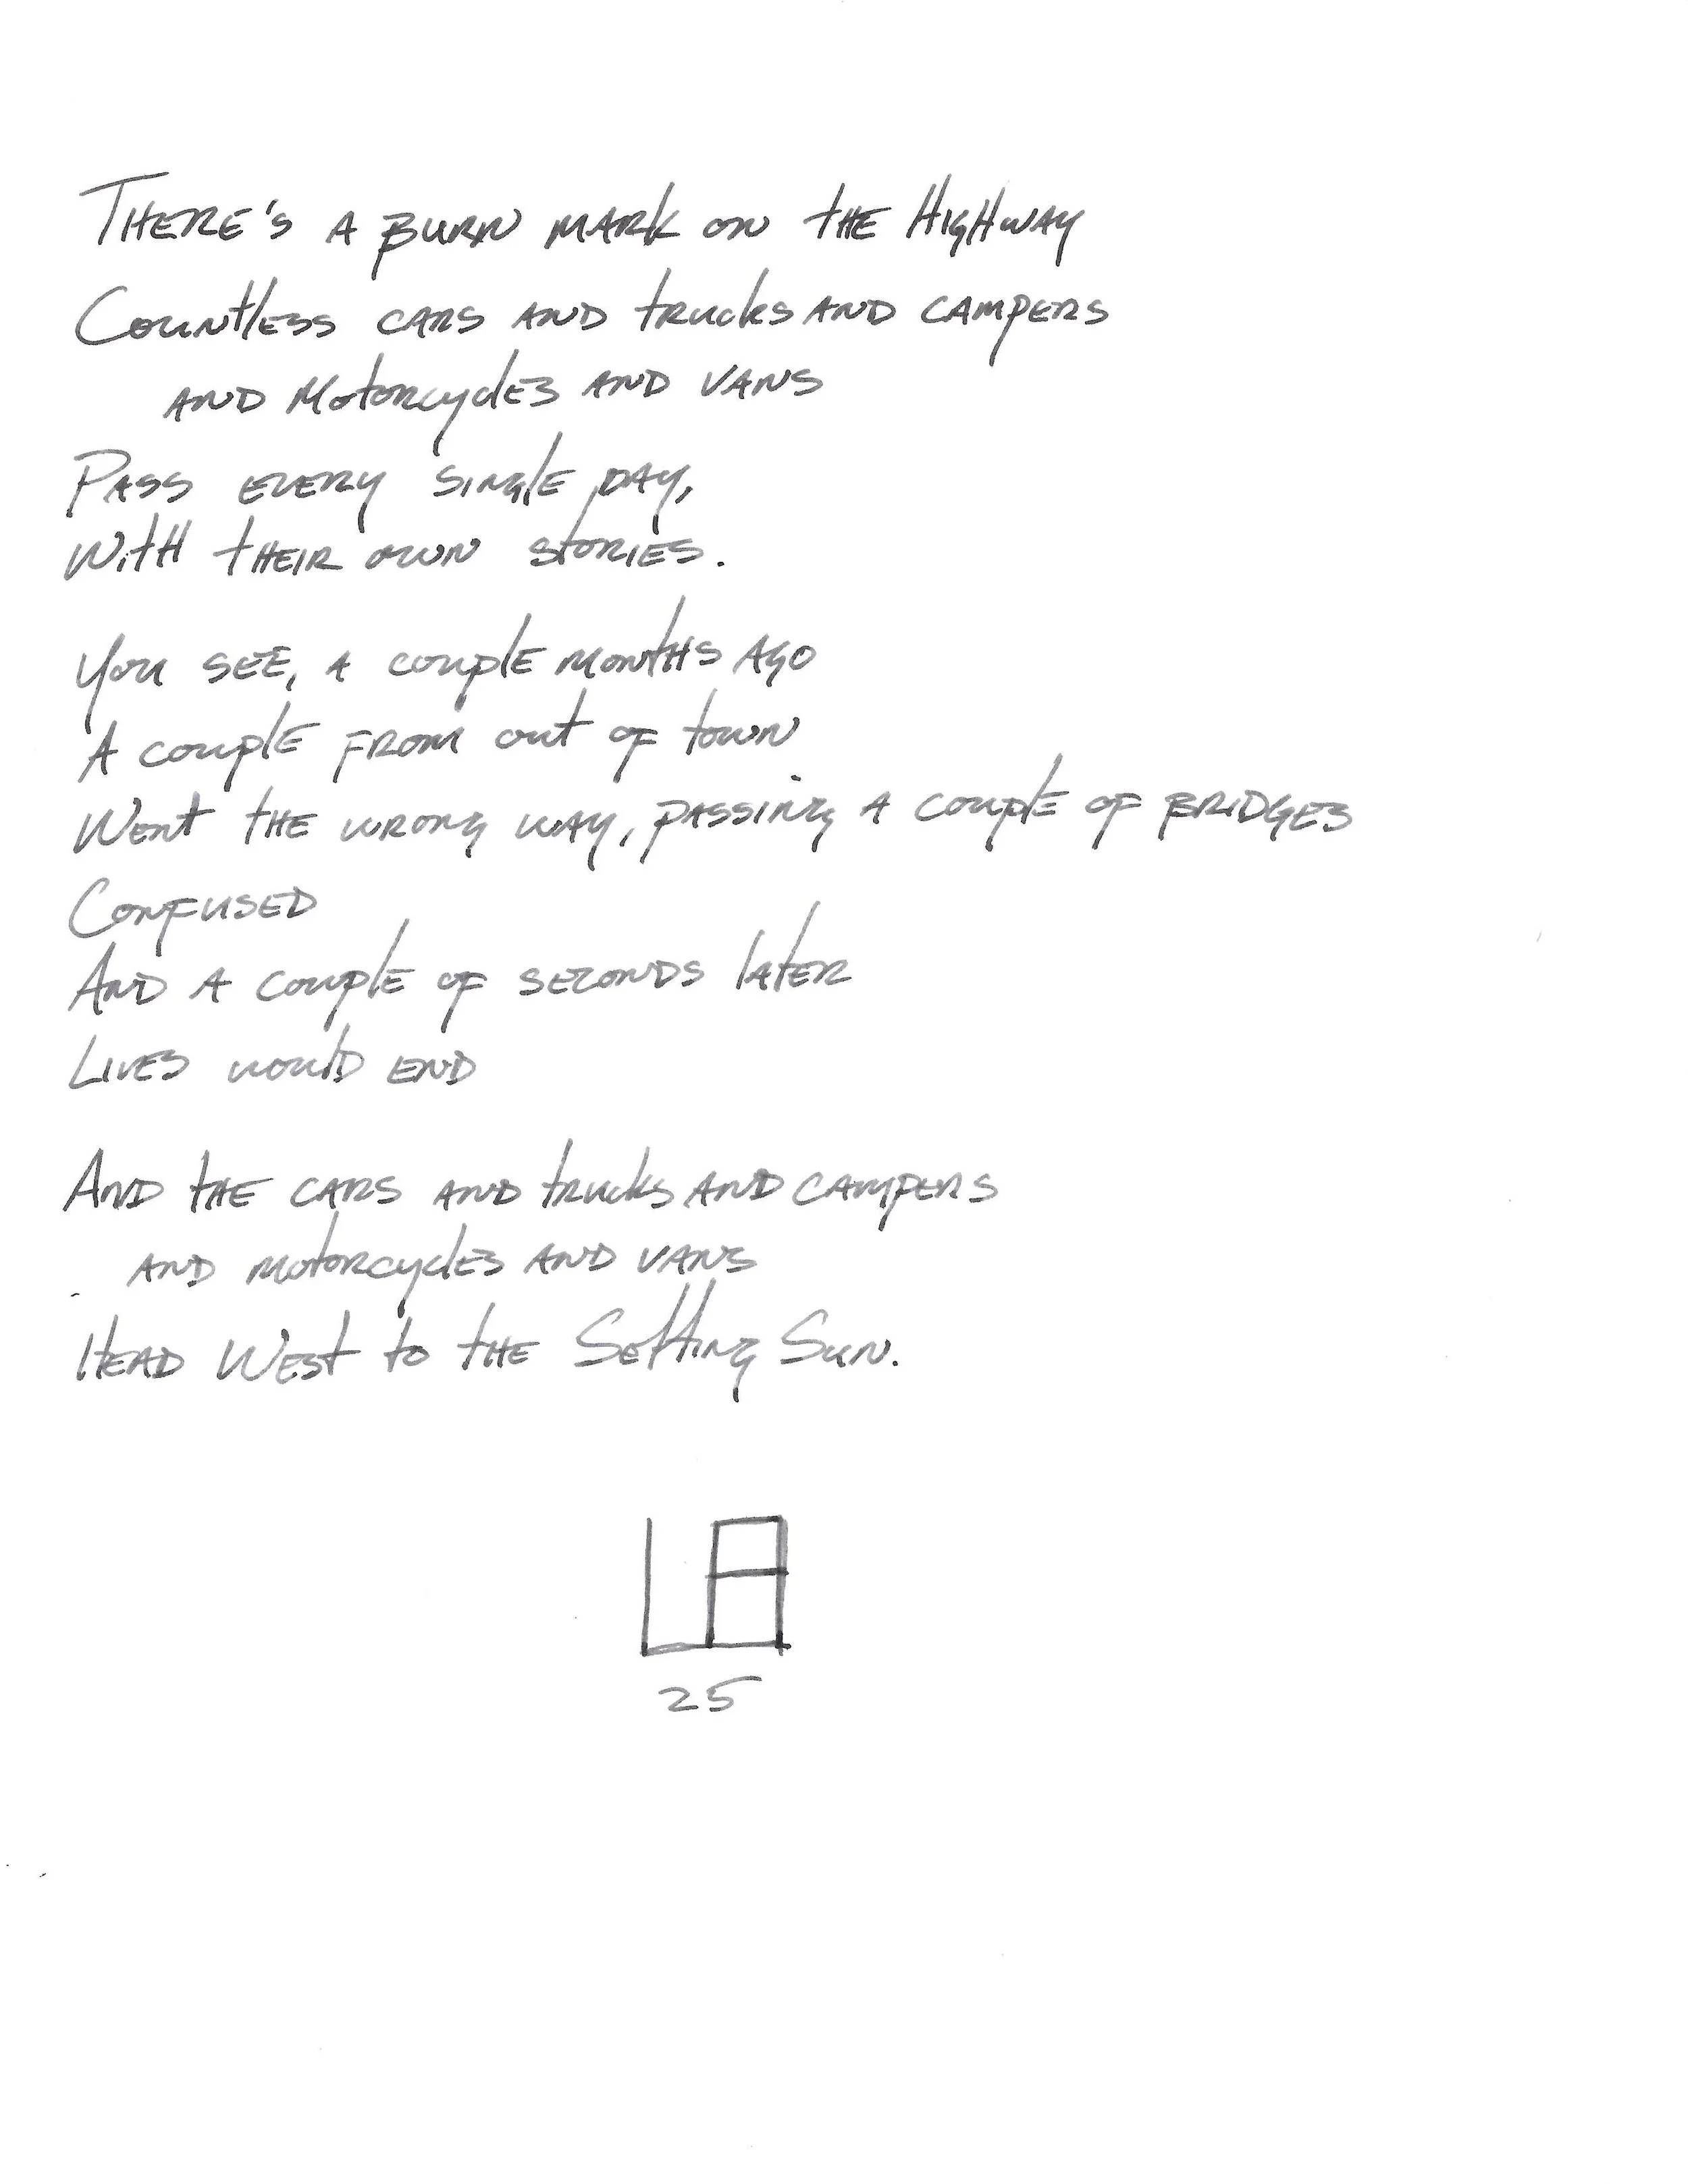 There's a burn mark on the Highway
Countless cars and trucks and campers
and Motorcycles and vans
Pass every single day,
With their own stories.
You see, a couple months ago
A couple from out of town
Went the wrong way, passing a couple of bridges
Confused
And a couple of seconds later
Lives would end
And the cars and trucks and campers
and motorcycles and vans
Head West to the Setting Sun.
LA
25